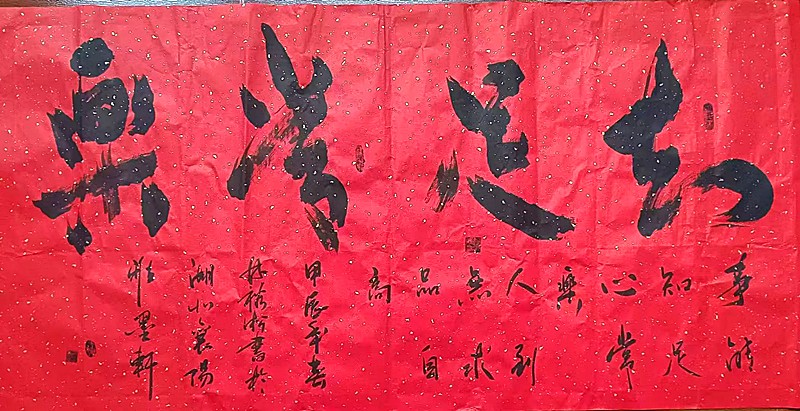 知足常樂
事能
知足
心常
樂
人到
無求
品自
高
甲辰年春
書於
湖北襄陽
雅墨軒